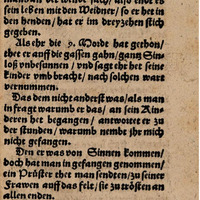 sein leßen mit den Weidner/ so er het in
den henden/ hat er im dreyzehen stich
gegeben.
Als ehr die 9. Morde hat gethon/
thet er auff die gassen gahn/ gang Sinn
loß vnbesunnen/ vnd sagt ehr het seine
kinder vmb bracht/ nach solchen wart
vernummen.
Das dem nicht anderst was/ als man
in fragt warumb er das/ an sein Kin-
deren het begangen/ antwortet er zu
der stunden/ warumb nembt ihr mich
nicht gefangen.
Den er was von Sinnen kommen/
doch hat man in gefangen genommen/
ein Prüster thet man senden/ zu seiner
Frawen auff das felt/ sie zu trösten an
allen enden.